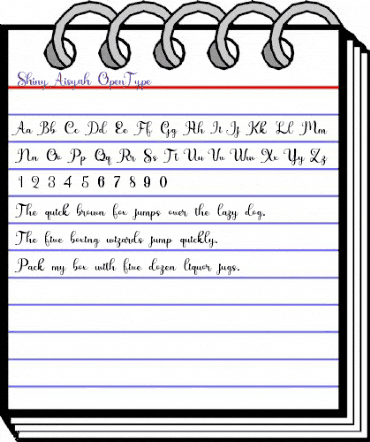 Shiny Aisyah OpenType
Aa Bb Cc Dd Ee Ff Gg Hh Ii Jj Kk Ll Mm
Nn Oo Pp Qq Rr Ss Tt Uu Vv Ww Xx Yy Zz
1 2 3 4 5 6 7 8 9 0
The quick brown fox jumps over the lazy dog.
The five boxing wizards jump quickly.
Pack my box with five dozen liquor jugs.